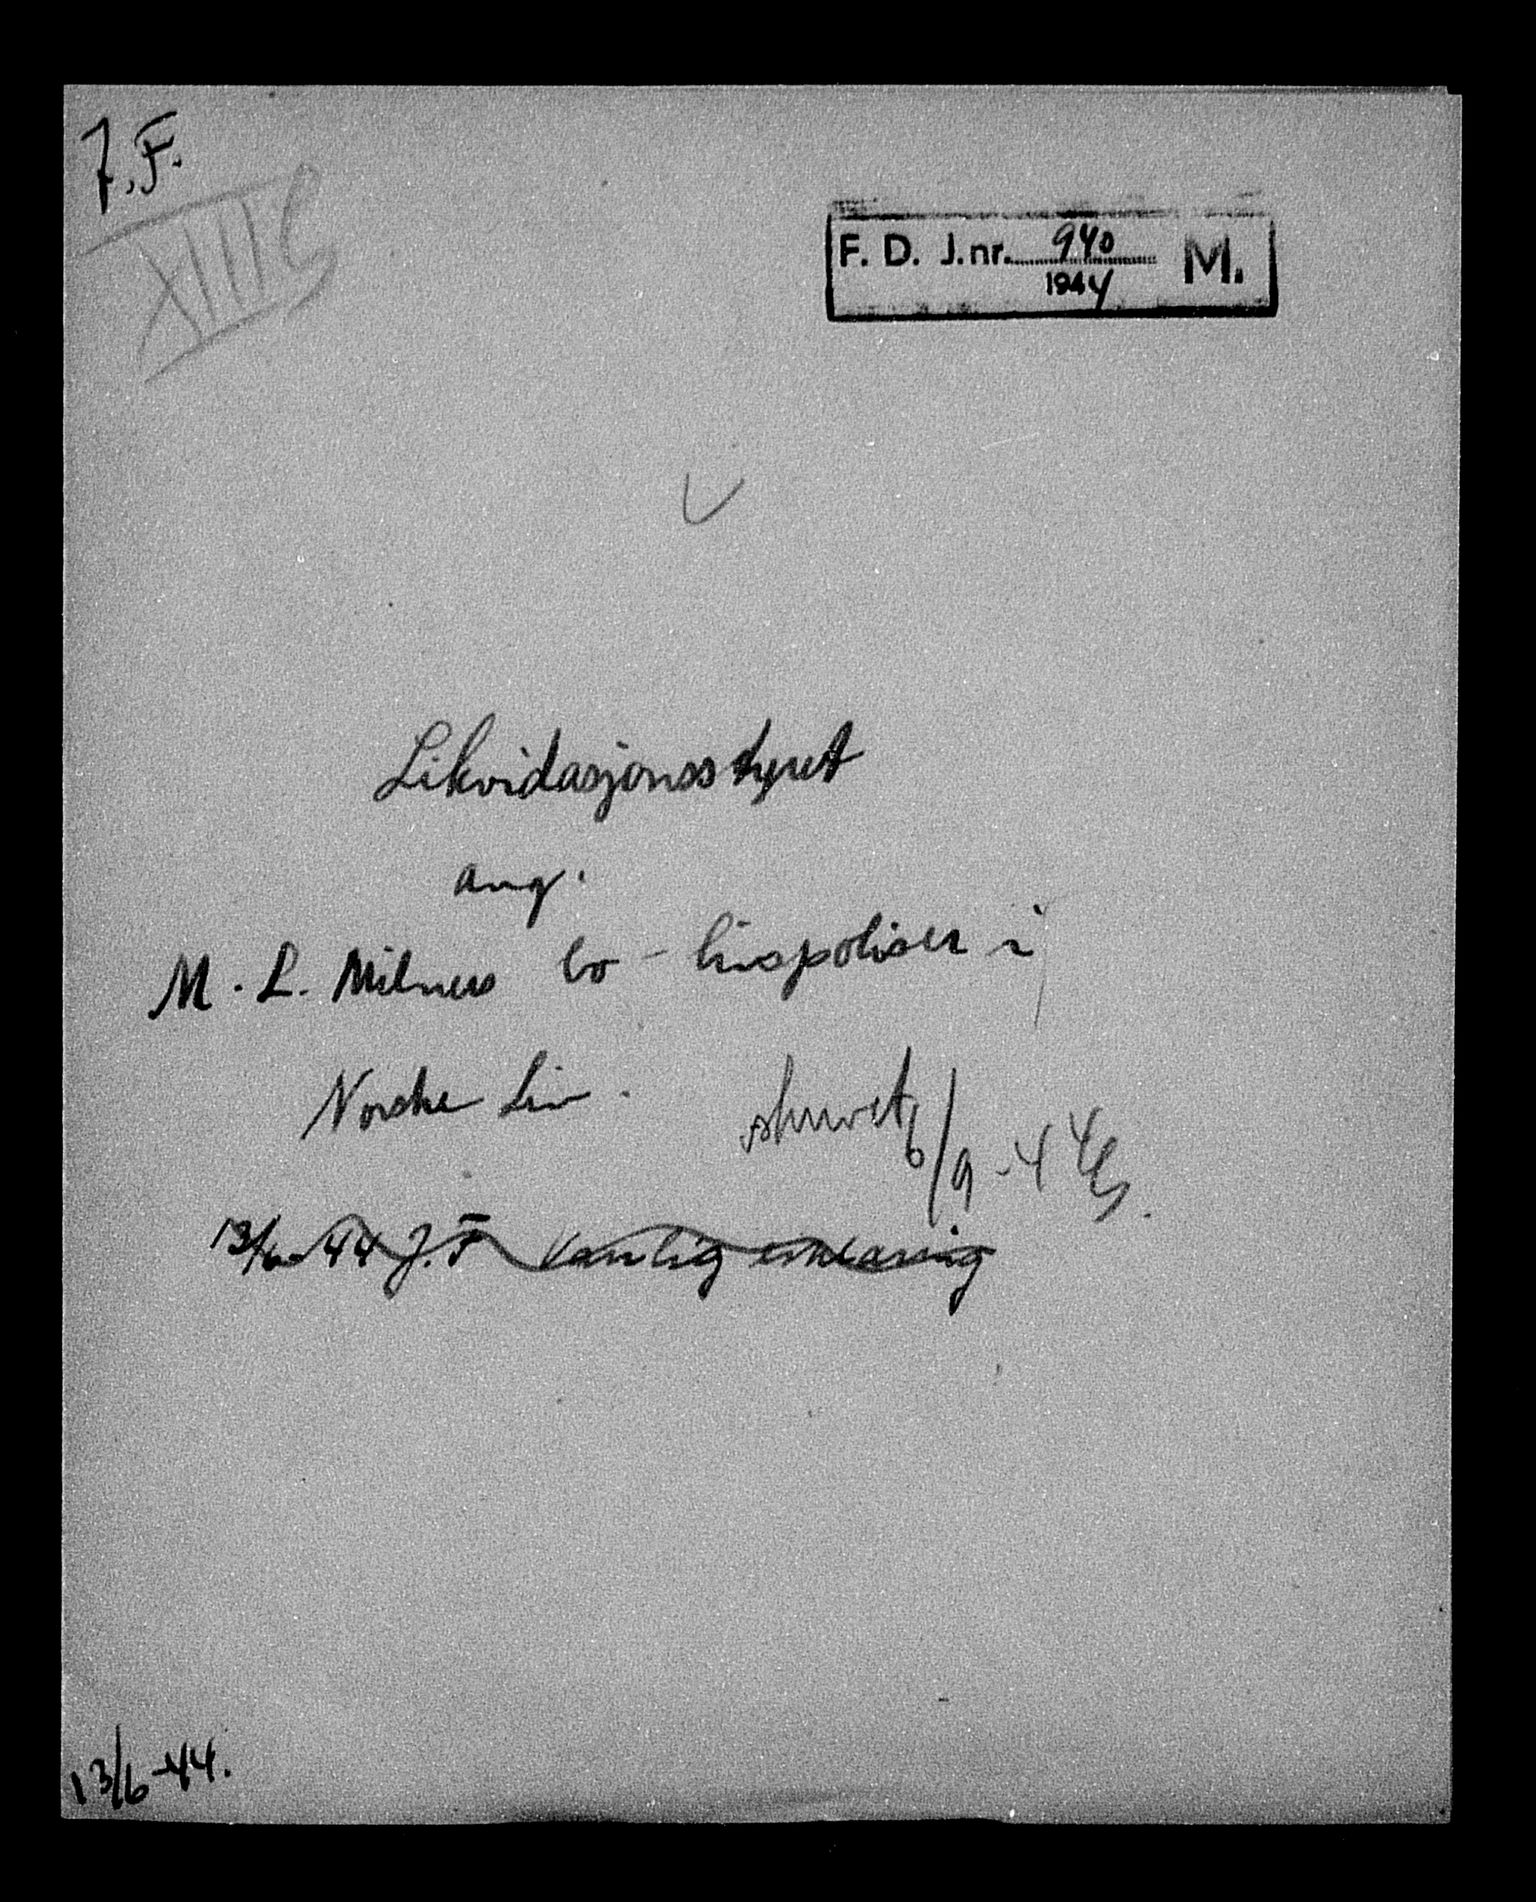 J.F.
XIII
F. D. J.nr. 940 M.
1944
Likvidasjonsstyret
ang.
M. L. Milners bo - livspoliser i
Norske Liv.
skrevet 6/9-44
13/6-44 J.F. Vanlig erklæring
13/6-44.